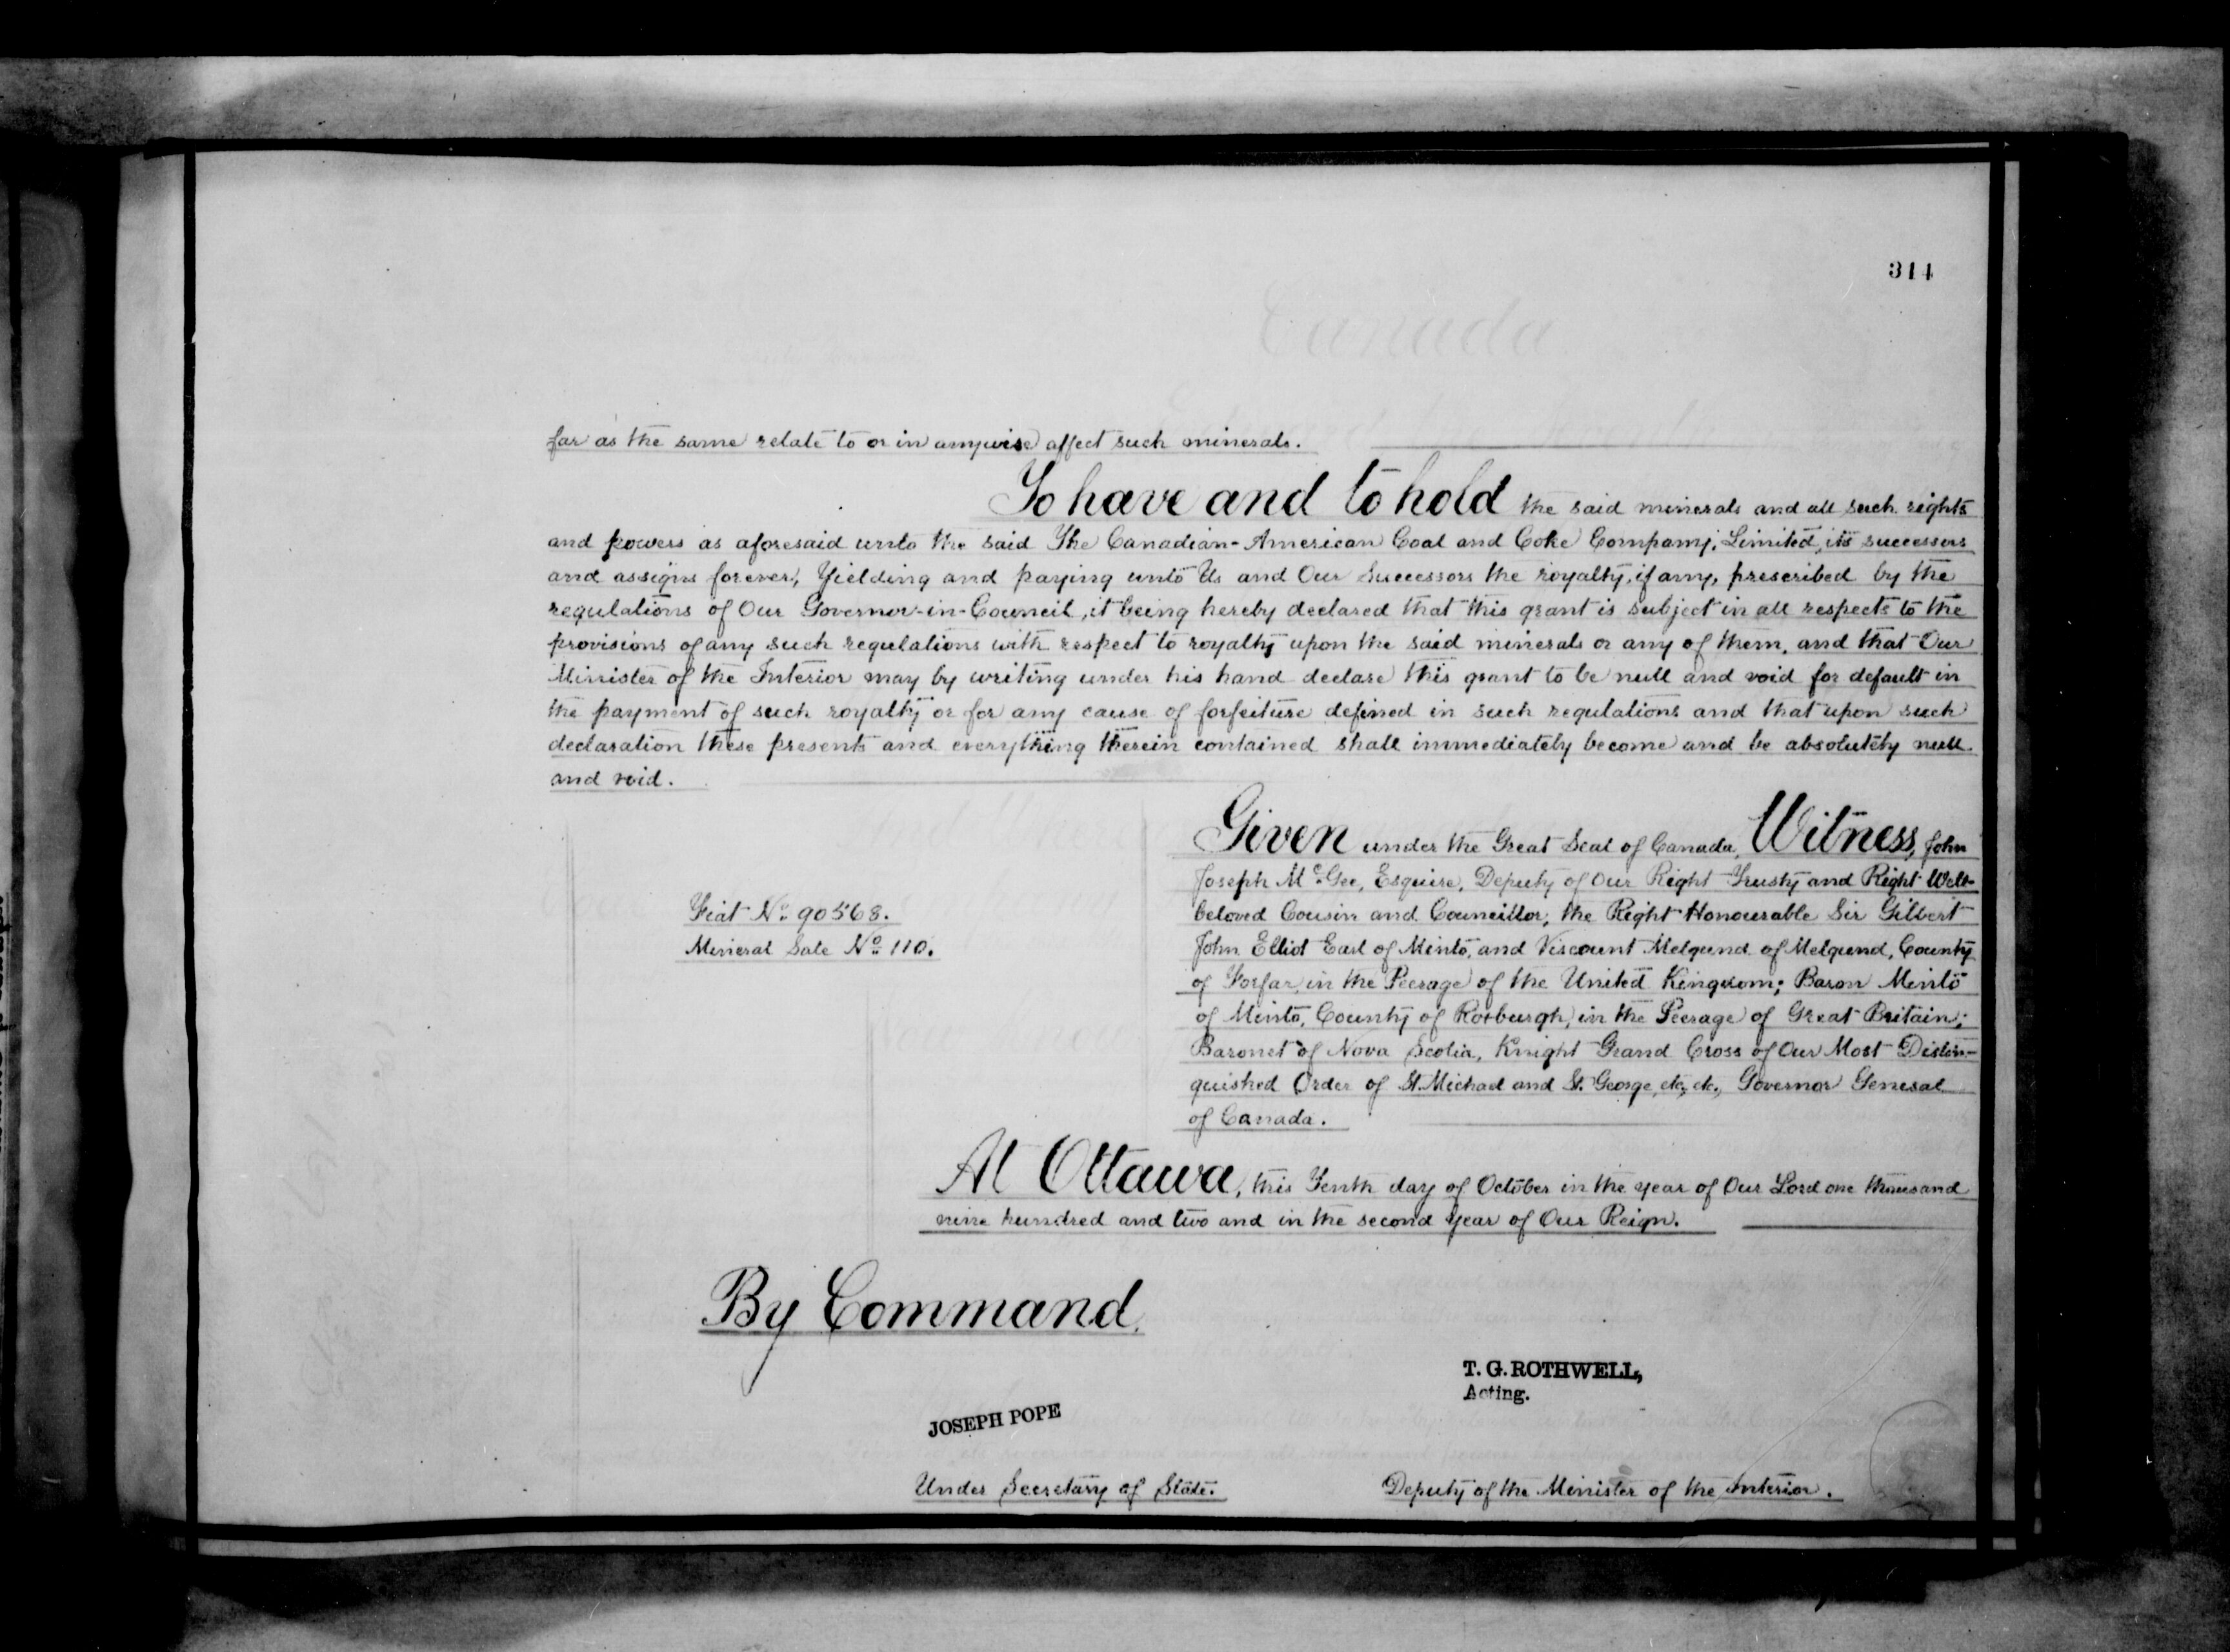 314
far as the same relate to or in anywise affect such minerals.
To have and to hold the said minerals and all such rights
and powers as aforesaid unto the said The Canadian-American Coal and Coke Company, Limited, its successors
and assigns forever, Yielding and paying unto Us and Our Successors the royalty, if any, prescribed by the
regulations of Our Governor-in-Council, it being hereby declared that this grant is subject in all respects to the
provisions of any such regulations with respect to royalty upon the said minerals or any of them, and that Our
Minister of the Interior may by writing under his hand declare this grant to be null and void for default in
the payment of such royalty or for any cause of forfeiture defined in such regulations and that upon such
declaration these presents and everything therein contained shall immediately become and be absolutely null
and void.
Given under the Great Seal of Canada, Witness, John
Joseph McGee, Esquire, Deputy of Our Right Trusty and Right Well-
beloved Cousin and Councillor, the Right Honourable Sir Gilbert
John Elliot Earl of Minto, and Viscount Melgund of Melgund, County
of Forfar, in the Peerage of the United Kingdom; Baron Minto
of Minto, County of Roxburgh, in the Peerage of Great Britain;
Baronet of Nova Scotia, Knight Grand Cross of Our Most Distin-
guished Order of St. Michael and St. George, etc, etc., Governor General
of Canada.
Fiat No. 90568.
Mineral Sale No. 110.
At Ottawa, this Tenth day of October in the year of Our Lord one thousand
nine hundred and two and in the second year of Our Reign.
By Command.
T. G. ROTHWELL,
Acting.
JOSEPH POPE
Under Secretary of State.
Deputy of the Minister of the Interior.
Canada